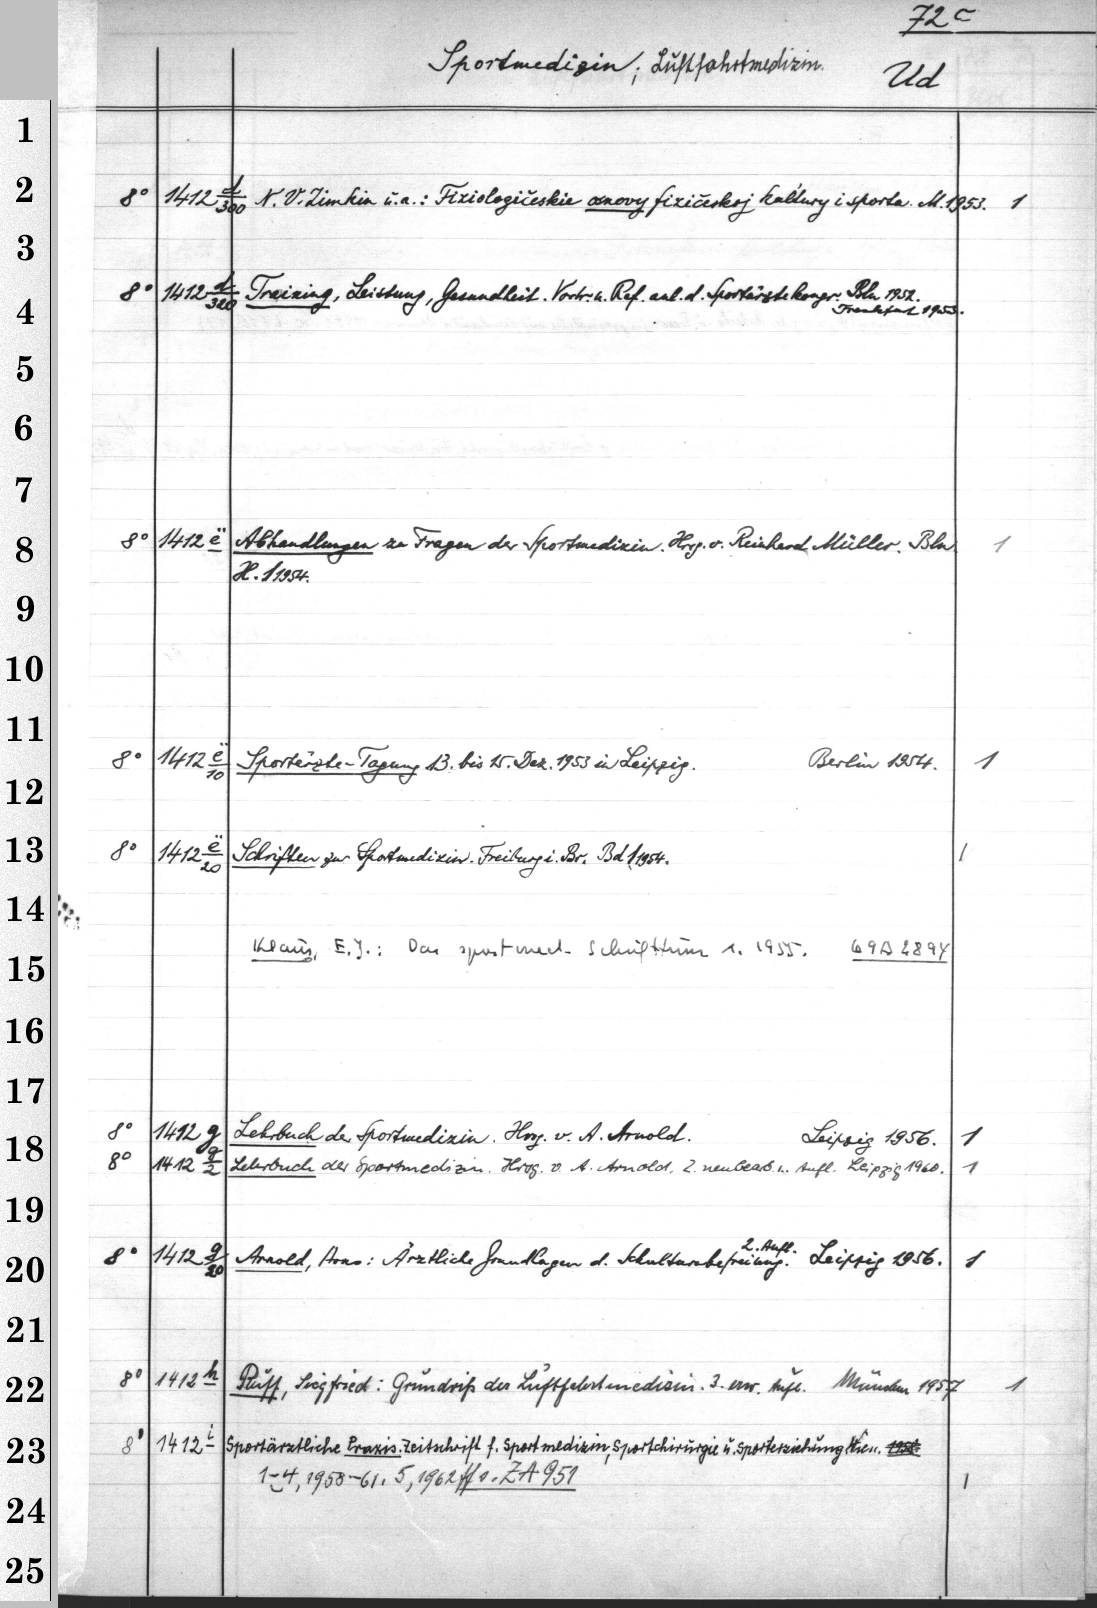 72 c
Sportmedizin; Luftfahrtmedizin.
Ud
1
2
8° 1412 d/300 N. V. Zimkin u.a.: Fiziologičeskie osnovy fizičeskoj kul'tury i sporta. M. 1953. 1
3
8° 1412 d/320 Training, Leistung, Gesundheit. Vortr. u. Ref. anl. d. Sportärztekongr. Bln 1952.
Frankfurt 1953.
4
5
6
7
8° 1412 ë Abhandlungen zu Fragen der Sportmedizin. Hrsg. v. Reinhard Müller. Bln 1
8
H. 1 1954.
9
10
11
8° 1412 ë/10 Sportärzte-Tagung 13. bis 15. Dez. 1953 in Leipzig. Berlin 1954. 1
12
13
8° 1412 ë/20 Schriften zur Sportmedizin. Freiburg i. Br. Bd 1, 1954. 1
14
Klaus, E. J.: Das sportmed. Schrifttum 1. 1955. 69 A 2894
15
16
17
8° 1412 g Lehrbuch der Sportmedizin. Hrsg. v. A. Arnold. Leipzig 1956. 1
18
8° 1412 g/2 Lehrbuch der Sportmedizin. Hrsg. v. A. Arnold. 2. neubearb. Aufl. Leipzig 1960. 1
19
2. Aufl.
8° 1412 g/20 Arnold, Arno: Ärztliche Grundlagen d. Schulturnbefreiung. Leipzig 1956. 1
20
21
8° 1412 h Ruff, Siegfried: Grundriß der Luftfahrtmedizin. 3. erw. Aufl. München 1957 1
22
8° 1412 i Sportärztliche Praxis. Zeitschrift f. Sportmedizin, Sportchirurgie u. Sporterziehung Wien.
23
1-4, 1958-61. 5, 1962 ff s. ZA 951 1
24
25